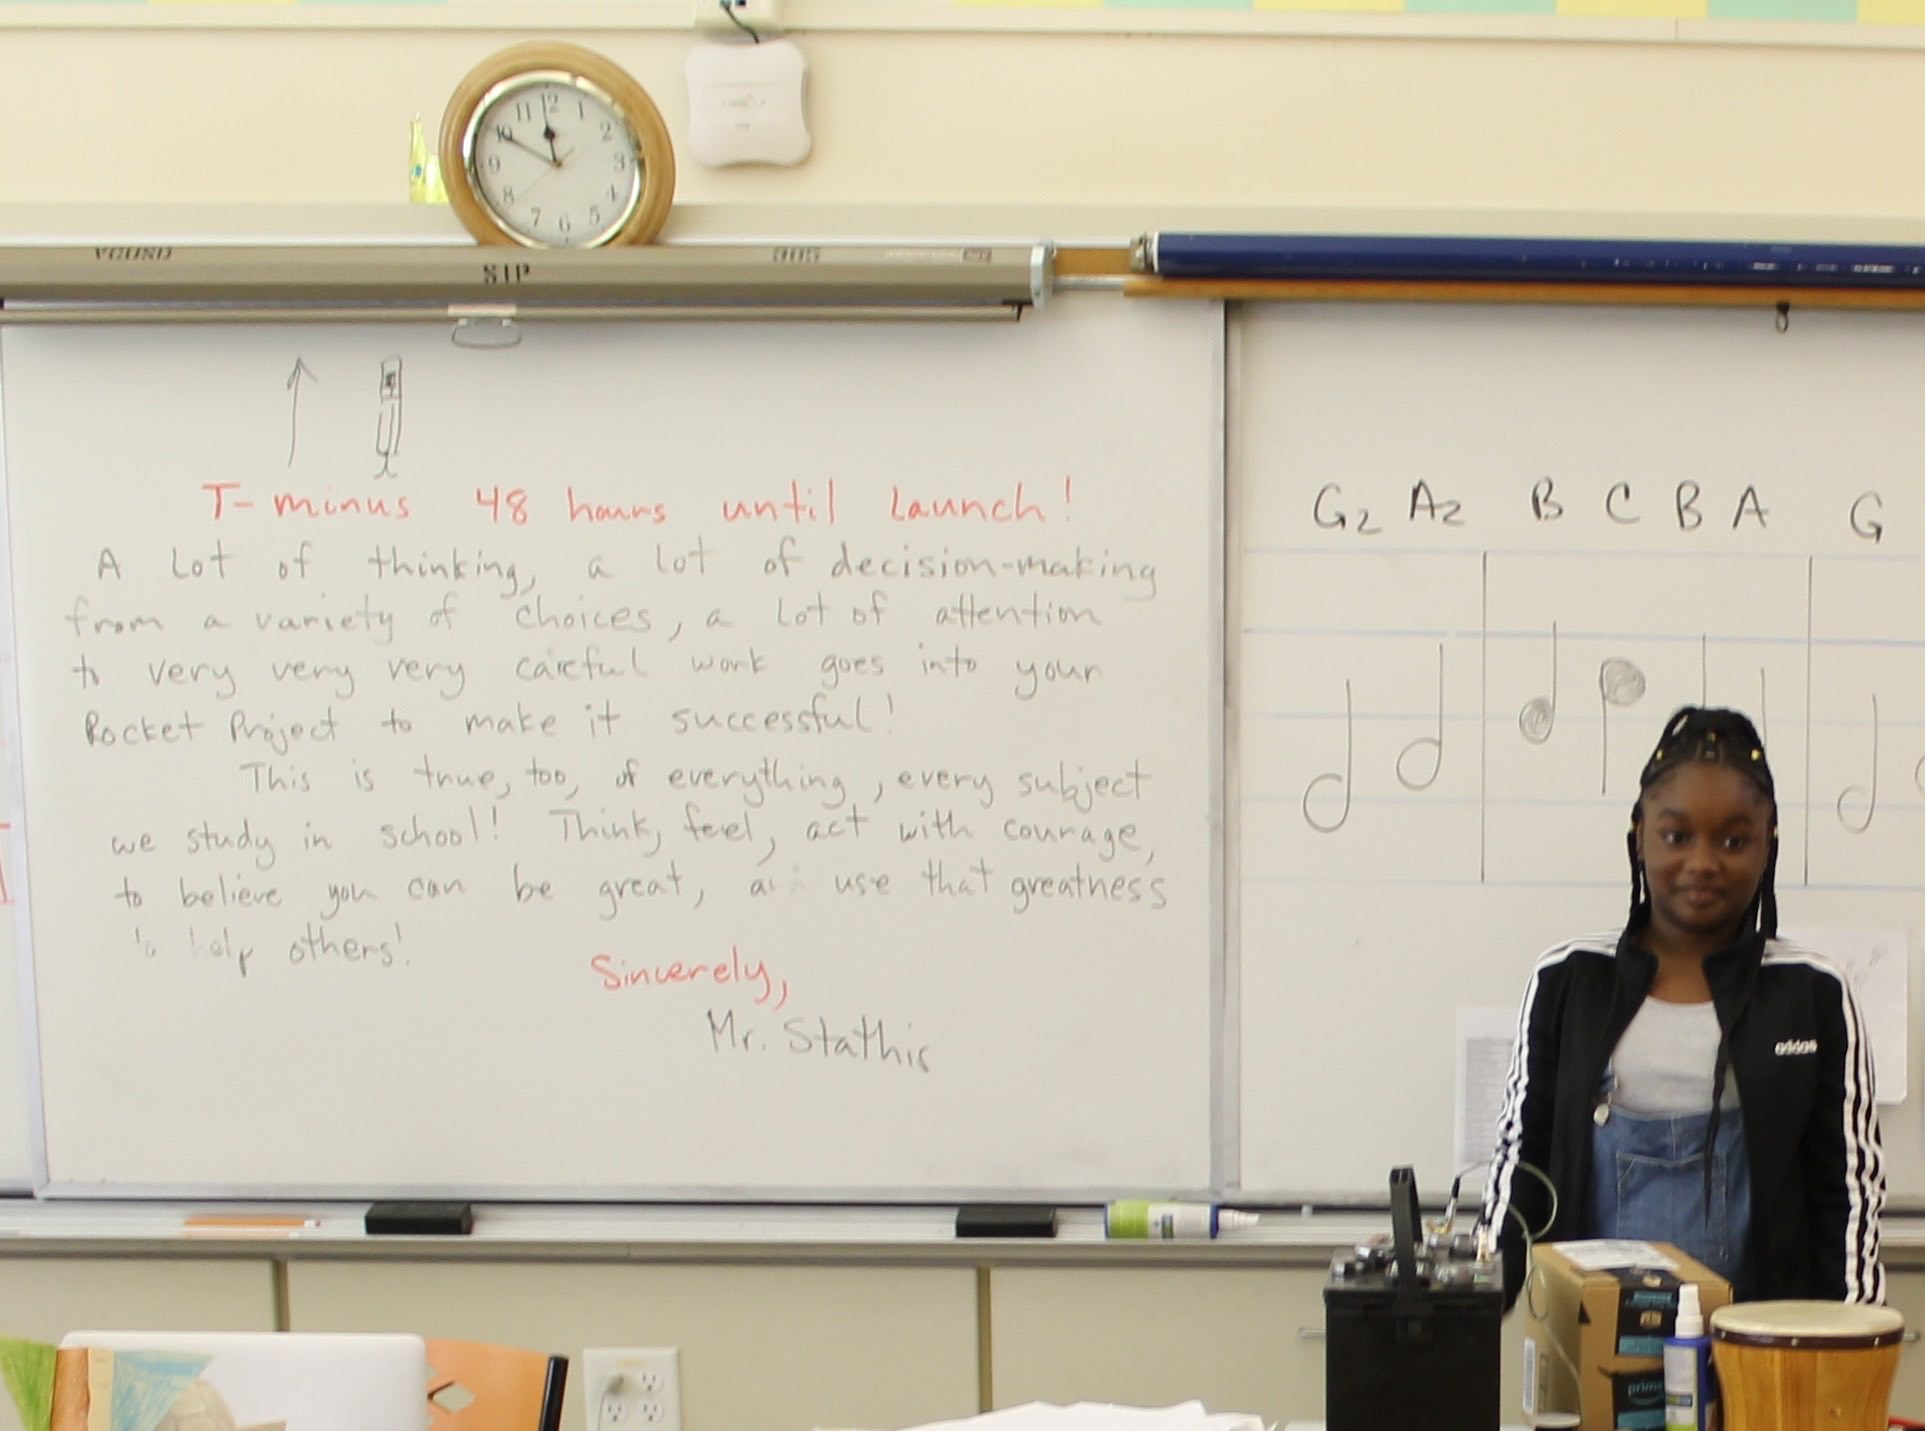 11 12 1
10 2
9 3
8 4
7 6 5
SIP
T-minus 48 hours until Launch!
A lot of thinking, a lot of decision-making
from a variety of choices, a lot of attention
to very very very careful work goes into your
Rocket Project to make it successful!
This is true, too, of everything, every subject
we study in school! Think, feel, act with courage,
to believe you can be great, use that greatness
to help others!
Sincerely,
Mr. Stathis
G2 A2 B C B A G
adidas
prime